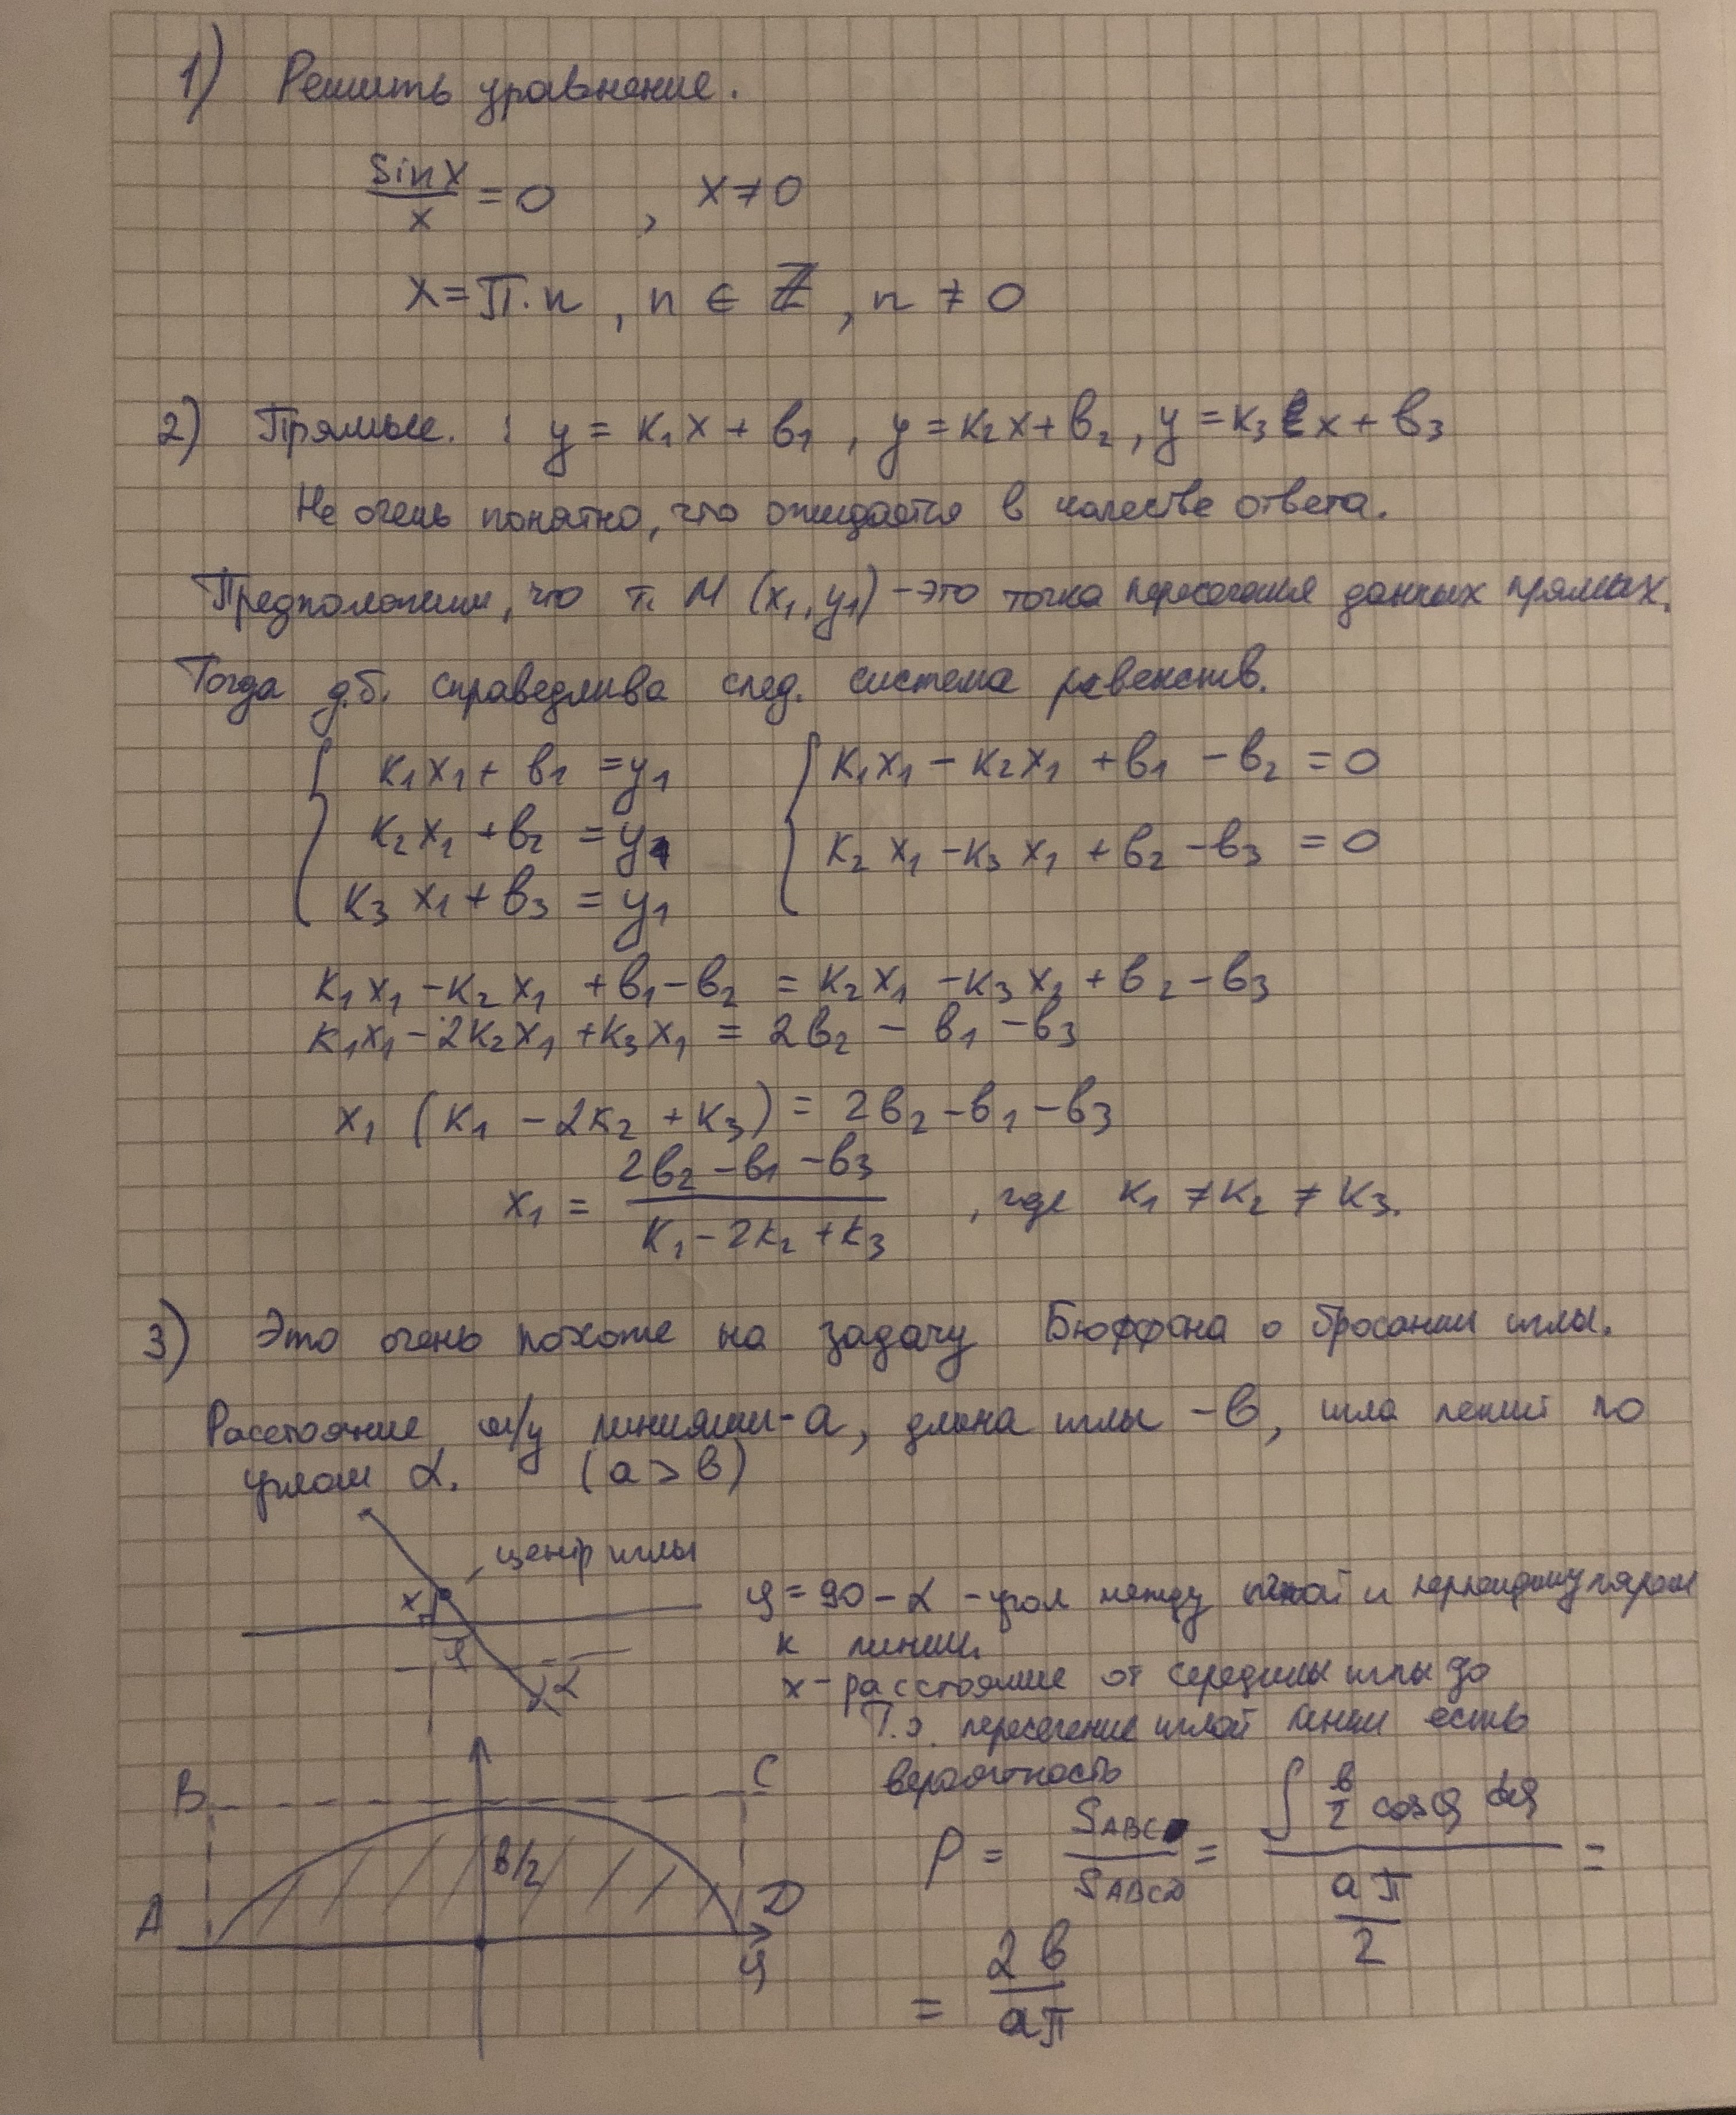 1) Решить уравнение.
sin x / x = 0 , x ≠ 0
x = π·n , n ∈ ℤ , n ≠ 0
2) Прямые. : y = k₁x + b₁ , y = k₂x + b₂ , y = k₃ x + b₃
Не очень понятно, что ожидается в качестве ответа.
Предположим, что т. M (x₁, y₁) - это точка пересечения данных прямых.
Тогда д.б. справедлива след. система равенств.
{ k₁x₁ + b₁ = y₁ { k₁x₁ - k₂x₁ + b₁ - b₂ = 0
k₂x₁ + b₂ = y₁
k₂x₁ - k₃x₁ + b₂ - b₃ = 0
k₃x₁ + b₃ = y₁
k₁x₁ - k₂x₁ + b₁ - b₂ = k₂x₁ - k₃x₁ + b₂ - b₃
k₁x₁ - 2k₂x₁ + k₃x₁ = 2b₂ - b₁ - b₃
x₁ (k₁ - 2k₂ + k₃) = 2b₂ - b₁ - b₃
x₁ = (2b₂ - b₁ - b₃) / (k₁ - 2k₂ + k₃) , где k₁ ≠ k₂ ≠ k₃.
3) Это очень похоже на задачу Бюффона о бросании иглы.
Расстояние м/у линиями - a, длина иглы - b, игла лежит по
углом α. (a > b)
центр иглы
x
φ
α
φ = 90 - α - угол между иглой и перпендикуляром
к линии.
x - расстояние от середины иглы до
Т.о. пересечение иглой линии есть
вероятность
B C
b/2
A D
φ
P = S_ABCD / S_ABCD = ∫ b/2 cosφ dφ / (aπ/2) =
= 2b / aπ